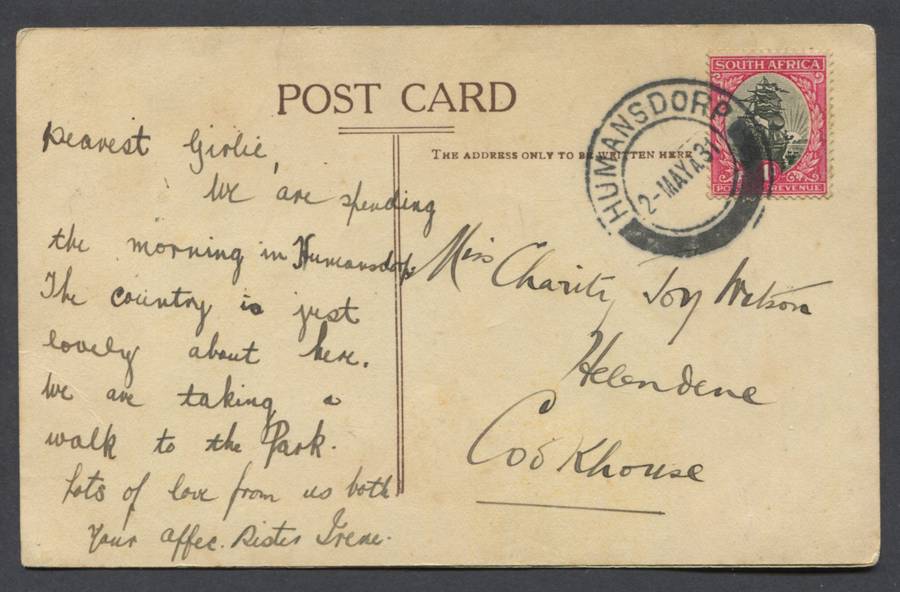 POST CARD
THE ADDRESS ONLY TO BE WRITTEN HERE
SOUTH AFRICA
1
REVENUE
HUMANSDORP
2-MAY 31
Dearest Girlie,
We are spending
the morning in Humansdorp.
The country is just
lovely about here.
We are taking a
walk to the Park.
Lots of love from us both
Your affec. Sister Irene.
Miss Charity Joy Watson
Helendene
Cookhouse